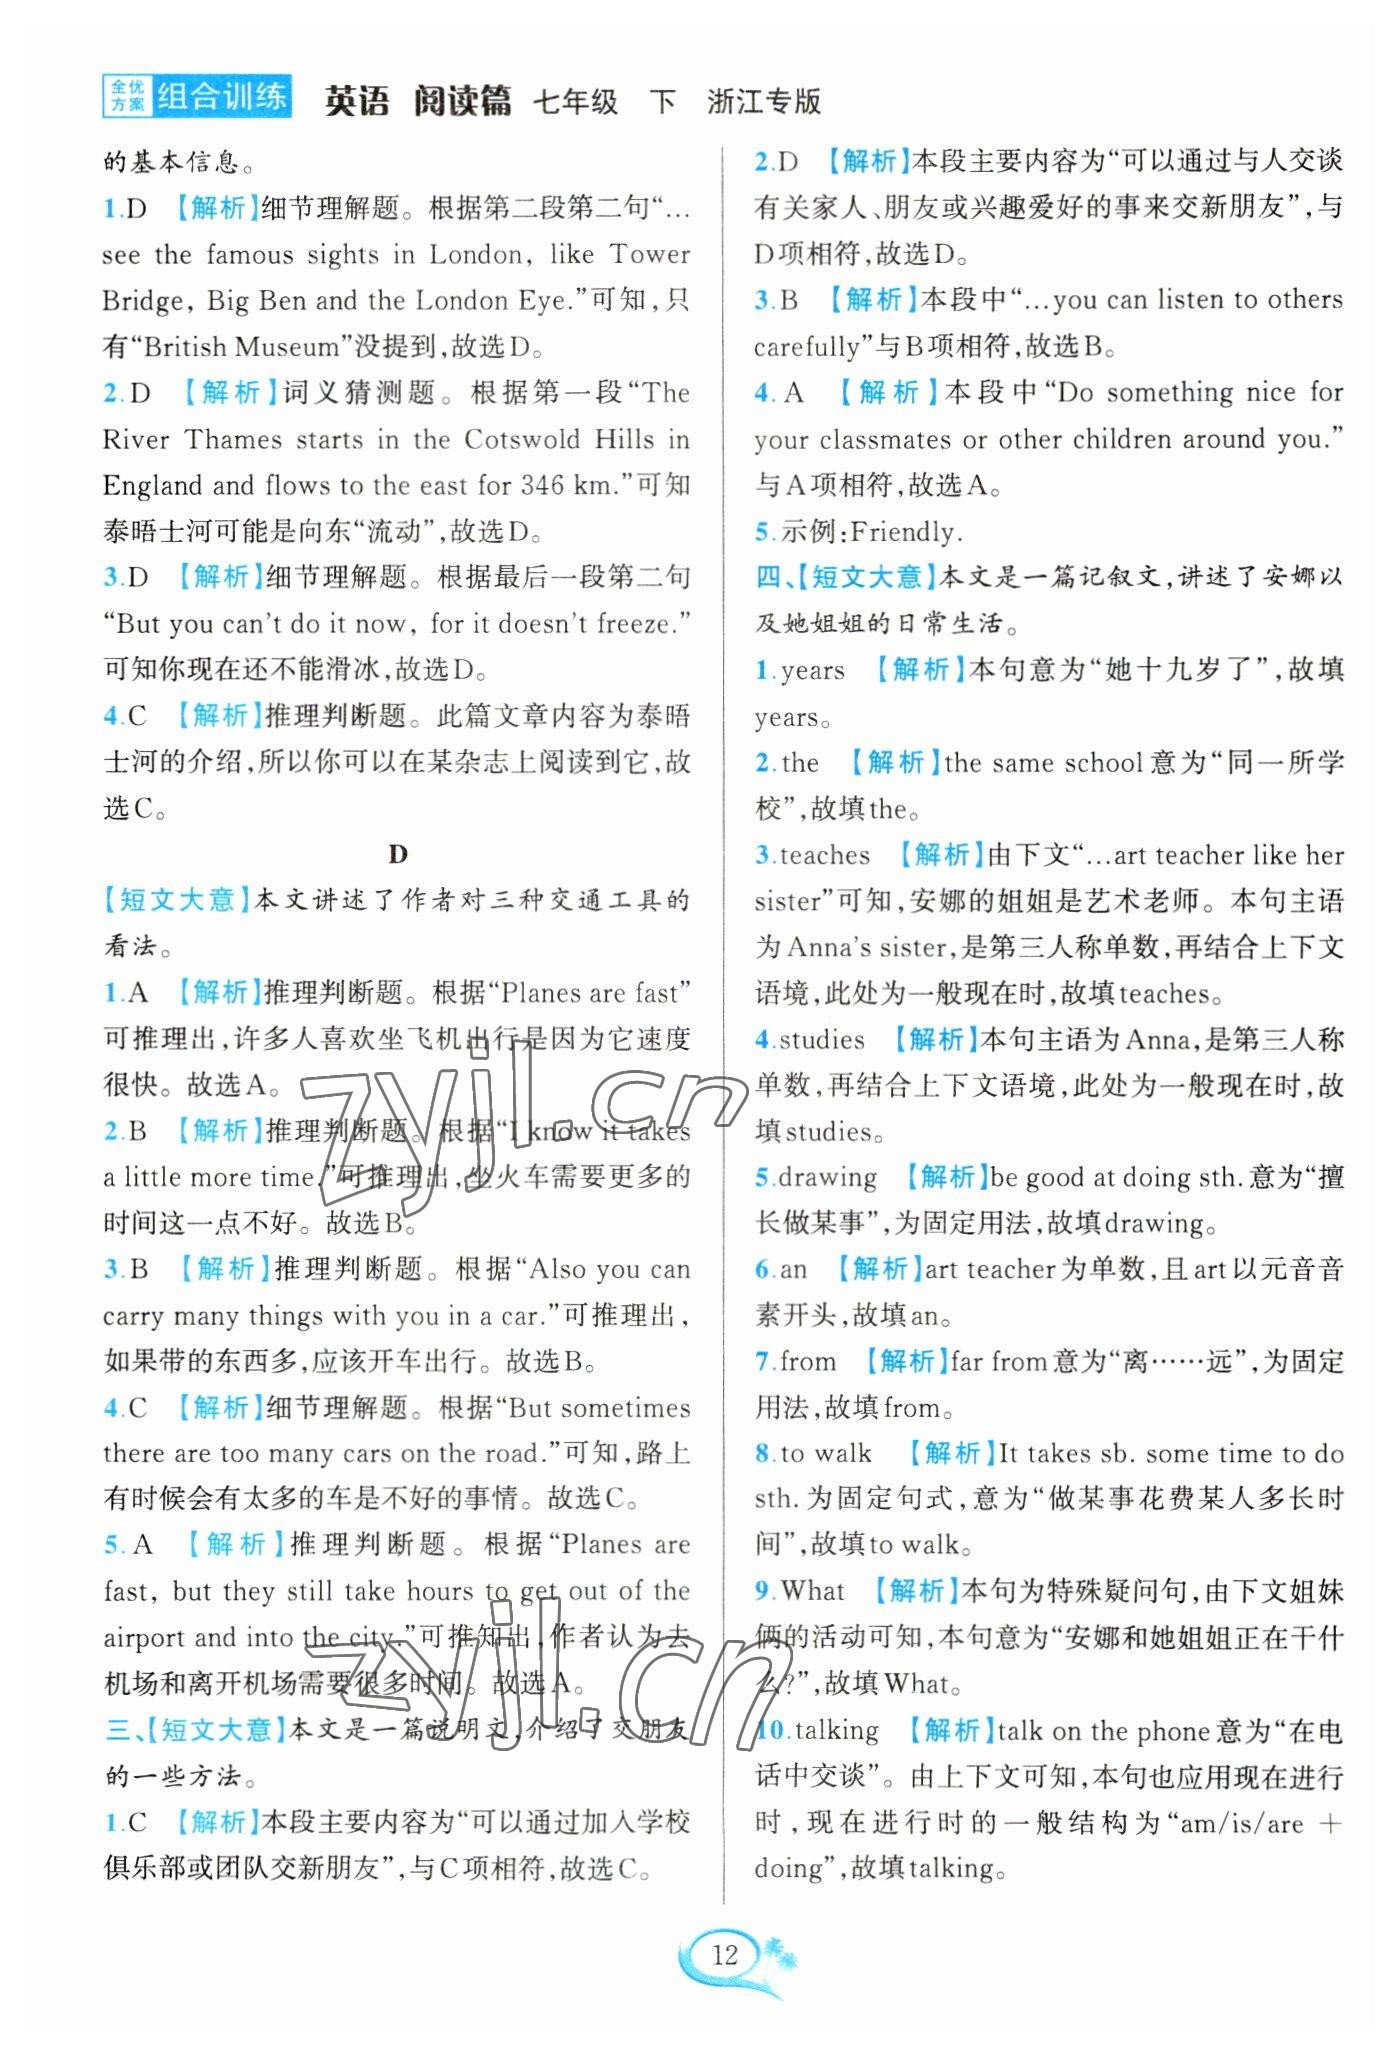 全优方案 组合训练 英语 阅读篇 七年级 下 浙江专版
的基本信息。
1.D 【解析】细节理解题。根据第二段第二句“…
see the famous sights in London, like Tower
Bridge, Big Ben and the London Eye.”可知,只
有“British Museum”没提到,故选D。
2.D 【解析】词义猜测题。根据第一段“The
River Thames starts in the Cotswold Hills in
England and flows to the east for 346 km.”可知
泰晤士河可能是向东“流动”,故选D。
3.D 【解析】细节理解题。根据最后一段第二句
“But you can't do it now, for it doesn't freeze.”
可知你现在还不能滑冰,故选D。
4.C 【解析】推理判断题。此篇文章内容为泰晤
士河的介绍,所以你可以在某杂志上阅读到它,故
选C。
D
【短文大意】本文讲述了作者对三种交通工具的
看法。
1.A 【解析】推理判断题。根据“Planes are fast”
可推理出,许多人喜欢坐飞机出行是因为它速度
很快。故选A。
2.B 【解析】推理判断题。根据“I know it takes
a little more time.”可推理出,坐火车需要更多的
时间这一点不好。故选B。
3.B 【解析】推理判断题。根据“Also you can
carry many things with you in a car.”可推理出,
如果带的东西多,应该开车出行。故选B。
4.C 【解析】细节理解题。根据“But sometimes
there are too many cars on the road.”可知,路上
有时候会有太多的车是不好的事情。故选C。
5.A 【解析】推理判断题。根据“Planes are
fast, but they still take hours to get out of the
airport and into the city.”可推知出,作者认为去
机场和离开机场需要很多时间。故选A。
三、【短文大意】本文是一篇说明文,介绍了交朋友
的一些方法。
1.C 【解析】本段主要内容为“可以通过加入学校
俱乐部或团队交新朋友”,与C项相符,故选C。
2.D 【解析】本段主要内容为“可以通过与人交谈
有关家人、朋友或兴趣爱好的事来交新朋友”,与
D项相符,故选D。
3.B 【解析】本段中“…you can listen to others
carefully”与B项相符,故选B。
4.A 【解析】本段中“Do something nice for
your classmates or other children around you.”
与A项相符,故选A。
5.示例:Friendly.
四、【短文大意】本文是一篇记叙文,讲述了安娜以
及她姐姐的日常生活。
1.years 【解析】本句意为“她十九岁了”,故填
years。
2.the 【解析】the same school意为“同一所学
校”,故填the。
3.teaches 【解析】由下文“…art teacher like her
sister”可知,安娜的姐姐是艺术老师。本句主语
为Anna's sister,是第三人称单数,再结合上下文
语境,此处为一般现在时,故填teaches。
4.studies 【解析】本句主语为Anna,是第三人称
单数,再结合上下文语境,此处为一般现在时,故
填studies。
5.drawing 【解析】be good at doing sth.意为“擅
长做某事”,为固定用法,故填drawing。
6.an 【解析】art teacher为单数,且art以元音音
素开头,故填an。
7.from 【解析】far from意为“离……远”,为固定
用法,故填from。
8.to walk 【解析】It takes sb. some time to do
sth.为固定句式,意为“做某事花费某人多长时
间”,故填to walk。
9.What 【解析】本句为特殊疑问句,由下文姐妹
俩的活动可知,本句意为“安娜和她姐姐正在干什
么?”,故填What。
10.talking 【解析】talk on the phone意为“在电
话中交谈”。由上下文可知,本句也应用现在进行
时,现在进行时的一般结构为“am/is/are +
doing”,故填talking。
12
zyjl.cn
zyjl.cn